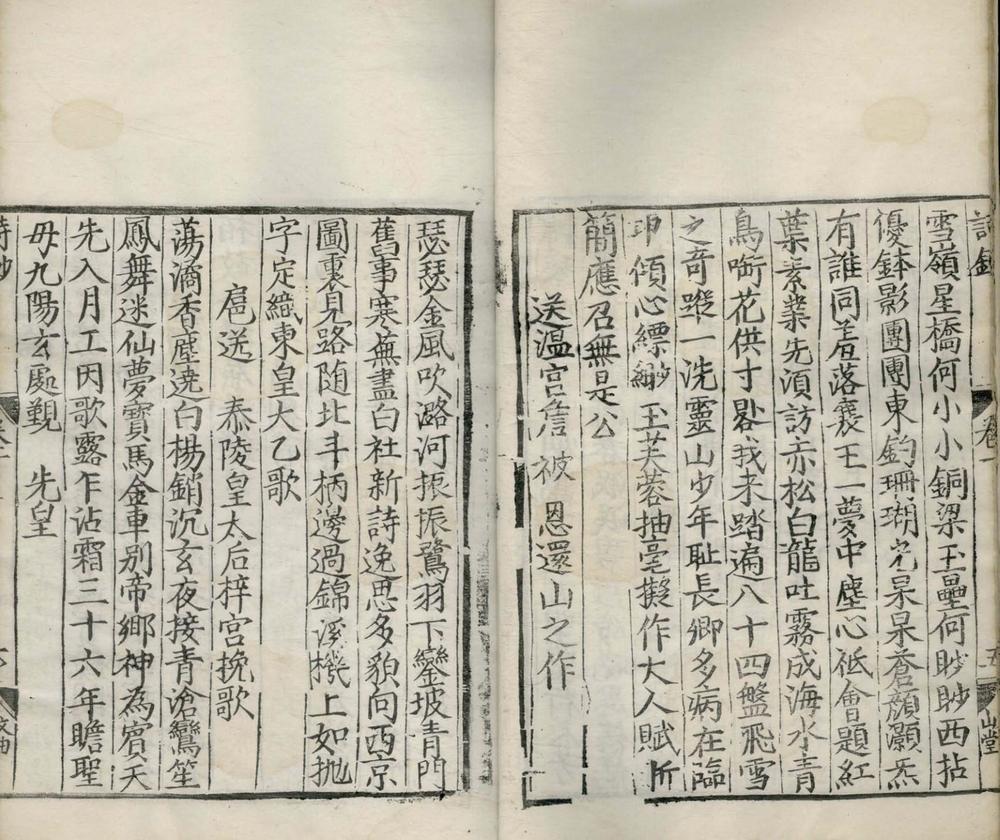 雪嶺星橋何小小銅梁玉壘何眇眇西拈
優鉢影團團東釣珊瑚光杲杲蒼顏灝炁
有誰同羞落襄王一夢中塵心祗會題紅
葉素業先須訪赤松白龍吐霧成海水青
鳥啣花供寸晷我來踏遍八十四盤飛雪
之奇蹤一洗靈山少年恥長卿多病在臨
卭傾心縹緲玉芙蓉抽毫擬作大人賦所
簡應召無是公
送溫宮詹被恩還山之作
瑟瑟金風吹潞河振振鷺羽下鑾坡青門
舊事寒蕪盡白社新詩逸思多貌向西京
圖裏見路随北斗柄邊過錦溪機上如抛
字定織東皇大乙歌
扈送 泰陵皇太后梓宫挽歌
蕩滴香塵遶白楊銷沉玄夜接青滄鸞笙
鳳舞迷仙夢寶馬金車别帝鄉神為賓天
先入月工因歌露乍沾霜三十六年瞻聖
母九陽玄處觐 先皇